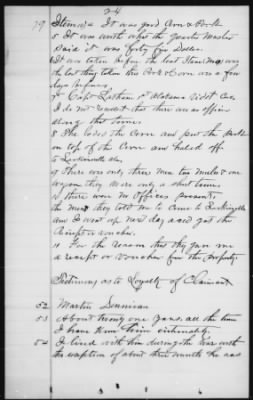 24
79 Item 1 & 2 It was good Corn & Pork
5 It was worth what the Quarter Master
said it was forty five Dollars
6 It was taken before the last Items was
the last thing taken this Pork & Corn was a few
days before
7 Capt Latham 1st Alabama Videt Cav
I do not recollect that there was an officer
along this time.
8 She loded the Corn and put the Pork
on top of the Corn and hauled off
to Larkinsville Ala.
9 there was only three men two mules & one
wagon they were only a short time.
10 there were no officers present.
the men they told me to Come to Larkinsville
and I went up next day and got the
Receipt or voucher.
11 For the reason that they gave me
a receipt or voucher for the property
Testimony as to Loyalty of Claimant
52 Martin
53 About twenty one years. all the time
I have known him intimately.
54 I lived with him during the war with
the exception of about three months he was